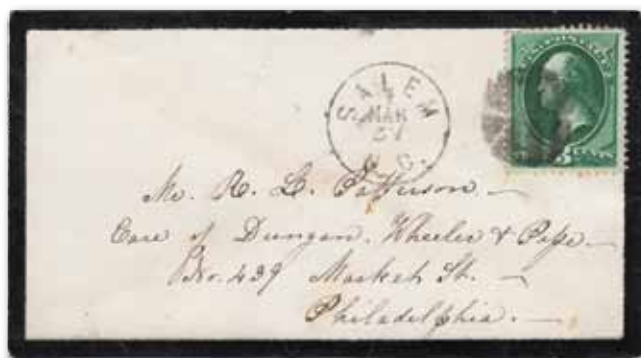 U.S. POSTAGE
SALEM
MAR
N.C.
3 CENTS
Mr. R. L. Patterson
Care of Dungan, Wheeler & Pope
No. 439 Market St.
Philadelphia.